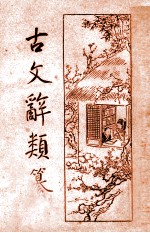 古文辭類篹